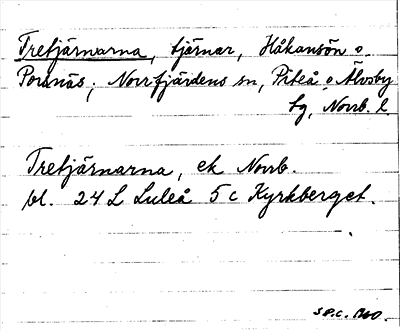 Tretjärnarna, tjärnar, Håkansön o.
Porsnäs; Norrfjärdens sn, Piteå o Älvsby
tg, Norrb. l.
Tretjärnarna, ek Norrb.
bl. 24 L Luleå 5 c Kyrkberget.